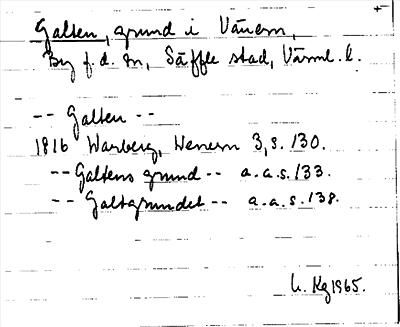 Galten, grund i Vänern,
By f.d. sn, Säffle stad, Värml. l.
-- Galten --
1816 Warberg, Wenern 3, s. 130.
-- Galtens grund -- a.a.s. 133.
-- Galtgrundet -- a.a.s. 138.
Kg 1965.